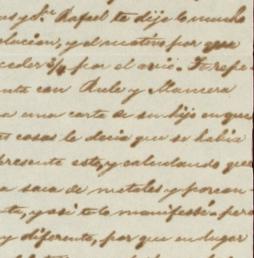 us y Dn. Rafael te dije lo mucho
olucion, y el motivo por que
ceder 3/4 por el avio. Te repe-
nte con Rule y Manera
a una carta de su hijo en que
s cosas le decia que se habia
presente esto, y calculando que
a saca de metales y por con-
te, y asi te lo manifesté pero
y diferente, por que en lugar